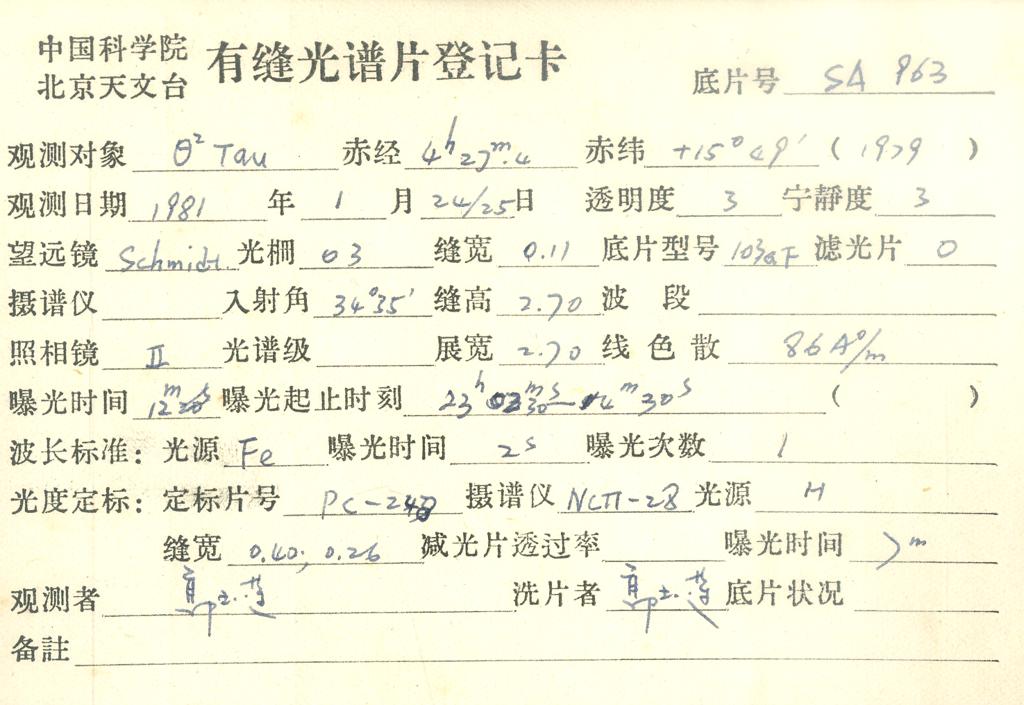 中国科学院
北京天文台
有缝光谱片登记卡
底片号 SA 963
观测对象 θ² Tau 赤经 4ʰ27ᵐ.4 赤纬 +15°49′ (1979)
观测日期 1981 年 1 月 24/25 日 透明度 3 宁静度 3
望远镜 Schmidt 光栅 03 缝宽 0.11 底片型号 103aF 滤光片 0
摄谱仪 入射角 34°35′ 缝高 2.70 波段
照相镜 II 光谱级 展宽 2.70 线色散 86A°/m
曝光时间 12ᵐ 曝光起止时刻 23ʰ ᵐ30ˢ— ᵐ30ˢ ( )
波长标准: 光源 Fe 曝光时间 2ˢ 曝光次数 1
光度定标: 定标片号 PC-24 摄谱仪 NCΠ-28 光源 H
缝宽 0.40; 0.26 减光片透过率 曝光时间 ᵐ
观测者 洗片者 底片状况
备註